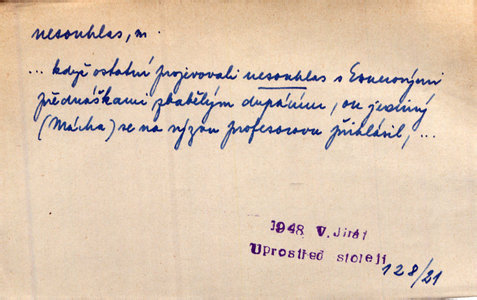 nesouhlas, m.
... když ostatní projevovali nesouhlas s Exnerovými
přednáškami zbabělým dupáním, on jediný
(Mácha) se na výzvu profesorovu přihlásil, ...
1948 V. Jirát
Uprostřed století
128/21